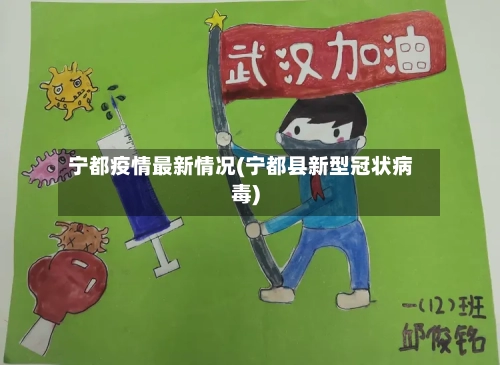 武汉加油
宁都疫情最新情况(宁都县新型冠状病
毒)
一(12)班
邱俊铭